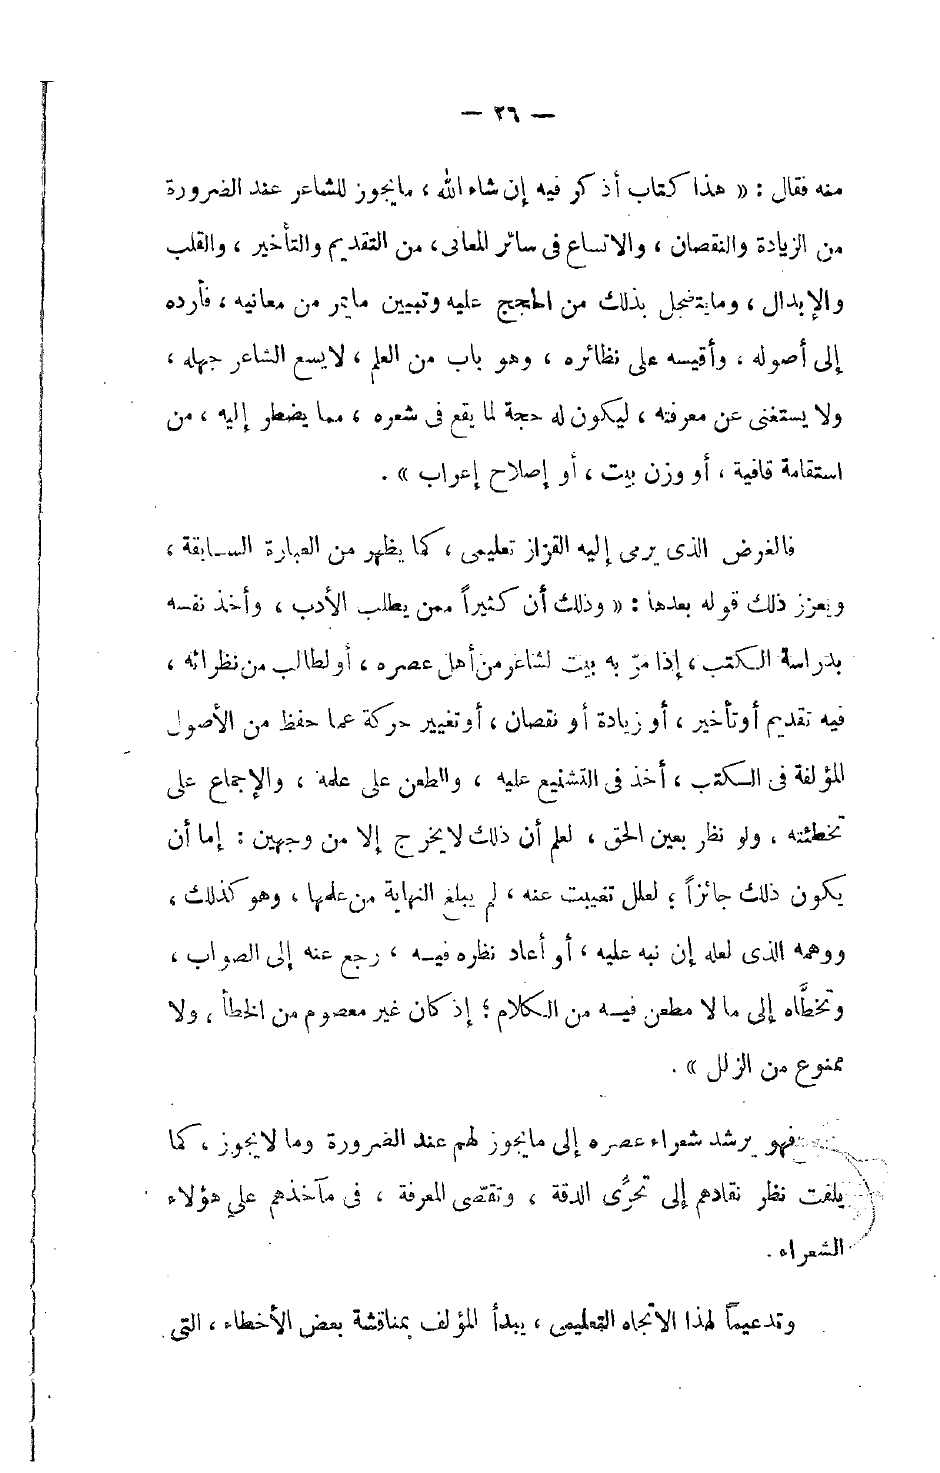 — ٢٦ —
منه فقال : « هذا كتاب أذكر فيه إن شاء الله ، ما يجوز للشاعر عند الضرورة
من الزيادة والنقصان ، والاتساع فى سائر المعانى ، من التقديم والتأخير ، والقلب
والإبدال ، وما يتصل بذلك من الحجج عليه وتبيين ما يمر من معانيه ، فأرده
إلى أصوله ، وأقيسه على نظائره ، وهو باب من العلم ، لا يسع الشاعر جهله ،
ولا يستغنى عن معرفته ، ليكون له حجة لما يقع فى شعره ، مما يضطر إليه ، من
استقامة قافية ، أو وزن بيت ، أو إصلاح إعراب » .
فالغرض الذى يرمى إليه القزاز تعليمى ، كما يظهر من العبارة السابقة ،
ويعزز ذلك قوله بعدها : « وذلك أن كثيراً ممن يطلب الأدب ، وأخذ نفسه
بدراسة الكتب ، إذا مرّ به بيت لشاعر من أهل عصره ، أو لطالب من نظرائه ،
فيه تقديم أو تأخير ، أو زيادة أو نقصان ، أو تغيير حركة عما حفظ من الأصول
المؤلفة فى الكتب ، أخذ فى التشنيع عليه ، والطعن على علمه ، والإجماع على
تخطئته ، ولو نظر بعين الحق ، لعلم أن ذلك لا يخرج إلا من وجهين : إما أن
يكون ذلك جائزاً ؛ لعلل تغيبت عنه ، لم يبلغ النهاية من علمها ، وهو كذلك ،
ووهمه الذى لعله إن نبه عليه ، أو أعاد نظره فيه ، رجع عنه إلى الصواب ،
وتخطَّاه إلى ما لا مطعن فيه من الكلام ؛ إذ كان غير معصوم من الخطأ ، ولا
ممنوع من الزلل » .
فهو يرشد شعراء عصره إلى ما يجوز لهم عند الضرورة وما لا يجوز ، كما
يلفت نظر نقادهم إلى تحرِّى الدقة ، وتقصّى المعرفة ، فى مآخذهم على هؤلاء
الشعراء .
وتدعيماً لهذا الاتجاه التعليمى ، يبدأ المؤلف بمناقشة بعض الأخطاء ، التى